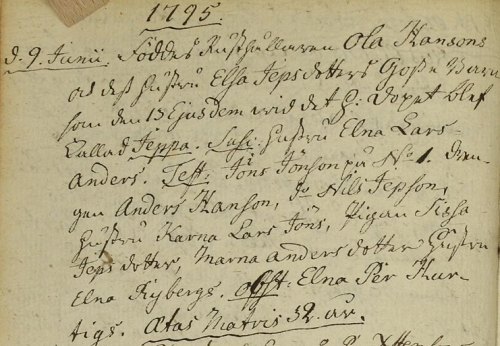 1795
d. 9 Junii. Föddes Rusthållaren Ola Hansons
och dess hustru Elsa Jeps dotters Gosse Barn
som den 15 Ejusdem wid det H: Dopet blef
Kallad Jeppa. Susc: Hustru Elna Lars
Anders. Test: Jöns Jönson på No 1. Dren-
gen Anders Hanson, Do Nils Jepson,
Hustru Karna Lars Jöns, Pigan Sissa
Jeps dotter, Marna Anders dotter Hustru
Elna Rybergs. obst: Elna Per Hur-
tigs. Ætas Matris 52. år.